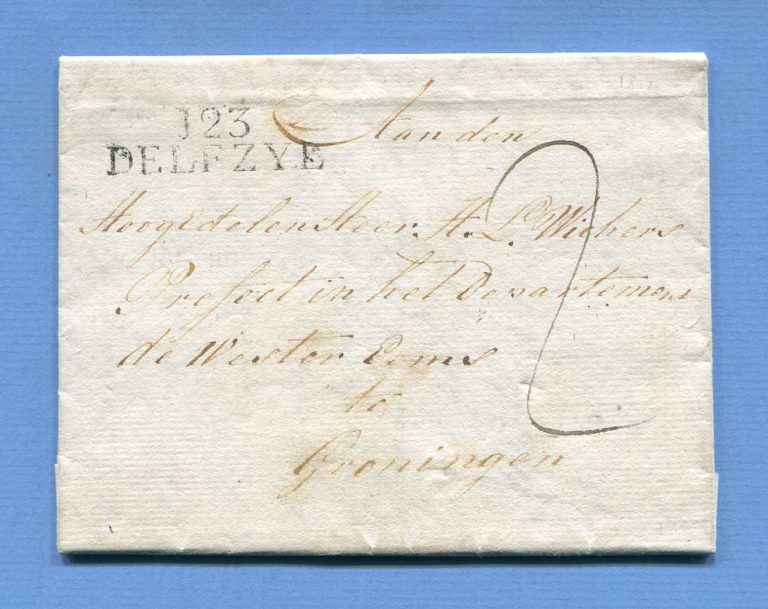 123
DELFZYE
Aan den
HoogEdelen Heer H. L. Wichers
Prefect in het Departement
de Wester Eems
te
Groningen
2